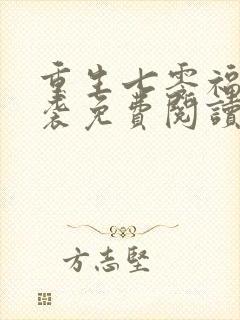 重生七零福
袭免費閱讀
方志堅